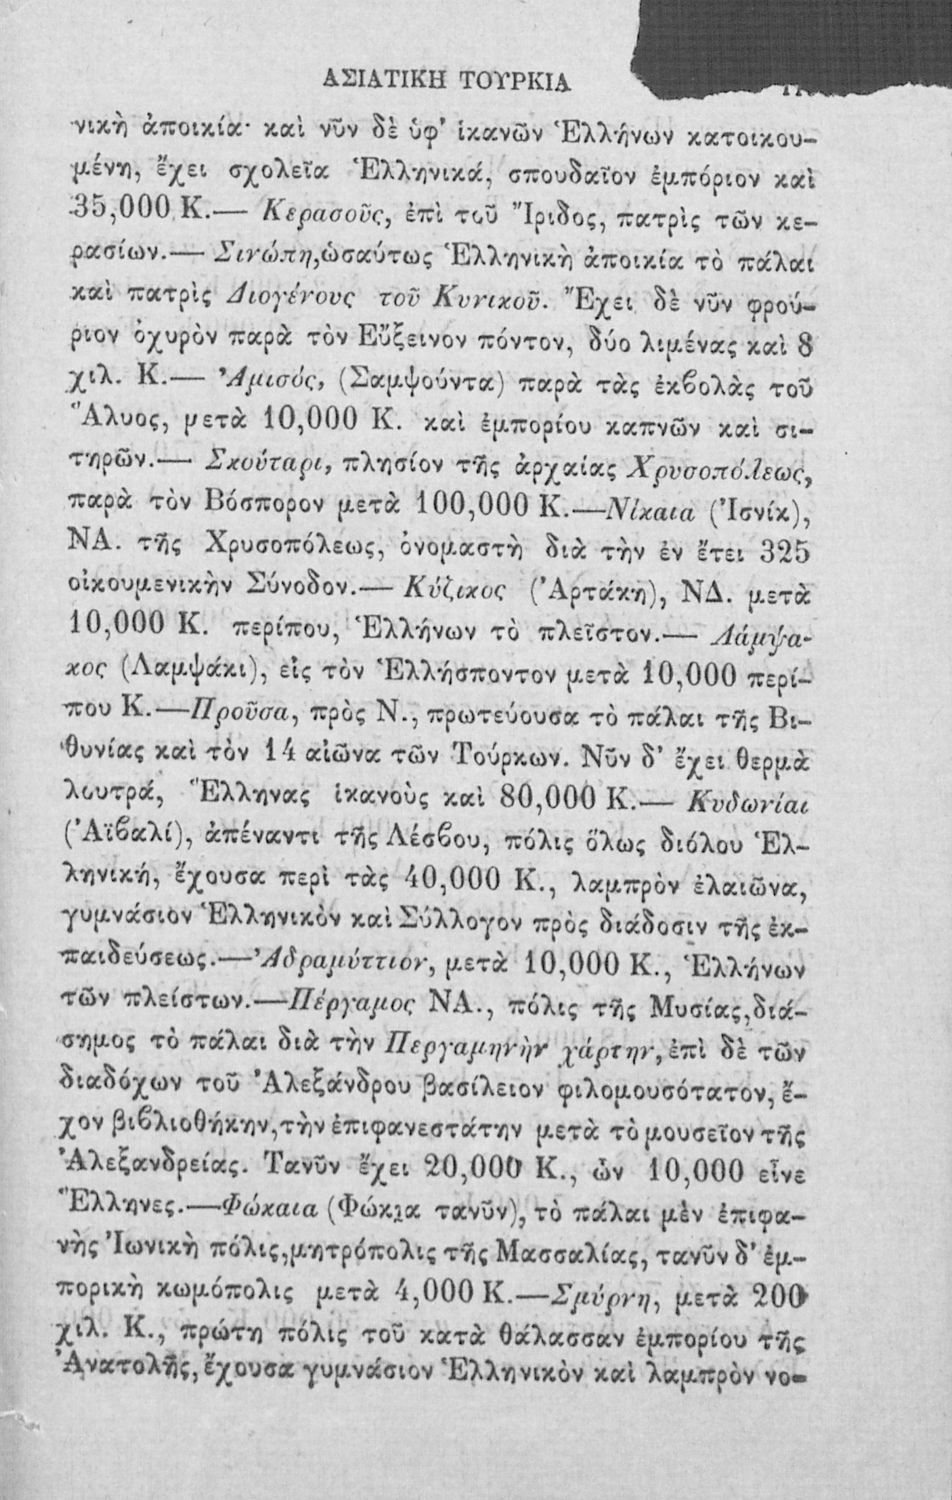 ΑΣΙΑΤΙΚΗ ΤΟΥΡΚΙΑ
νικὴ ἀποικία· καὶ νῦν δὲ ὑφ' ἱκανῶν Ἑλλήνων κατοικου-
μένη, ἔχει σχολεῖα Ἑλληνικά, σπουδαῖον ἐμπόριον καὶ
35,000 Κ.— Κερασοῦς, ἐπὶ τοῦ Ἴριδος, πατρὶς τῶν κε-
ρασίων.— Σινώπη,ὡσαύτως Ἑλληνικὴ ἀποικία τὸ πάλαι
καὶ πατρὶς Διογένους τοῦ Κυνικοῦ. Ἔχει δὲ νῦν φρού-
ριον ὀχυρὸν παρὰ τὸν Εὔξεινον πόντον, δύο λιμένας καὶ 8
χιλ. Κ.— Ἀμισός, (Σαμψούντα) παρὰ τὰς ἐκβολὰς τοῦ
Ἅλυος, μετὰ 10,000 Κ. καὶ ἐμπορίου καπνῶν καὶ σι-
τηρῶν.— Σκούταρι, πλησίον τῆς ἀρχαίας Χρυσοπόλεως,
παρὰ τὸν Βόσπορον μετὰ 100,000 Κ.—Νίκαια (Ἰσνίκ),
ΝΑ. τῆς Χρυσοπόλεως, ὀνομαστὴ διὰ τὴν ἐν ἔτει 325
οἰκουμενικὴν Σύνοδον.— Κύζικος (Ἀρτάκη), ΝΔ. μετὰ
10,000 Κ. περίπου, Ἑλλήνων τὸ πλεῖστον.— Λάμψα-
κος (Λαμψάκι), εἰς τὸν Ἑλλήσποντον μετὰ 10,000 περί-
που Κ.—Προῦσα, πρὸς Ν., πρωτεύουσα τὸ πάλαι τῆς Βι-
θυνίας καὶ τὸν 14 αἰῶνα τῶν Τούρκων. Νῦν δ' ἔχει θερμὰ
λουτρά, Ἕλληνας ἱκανοὺς καὶ 80,000 Κ.— Κυδωνίαι
(Ἀϊβαλί), ἀπέναντι τῆς Λέσβου, πόλις ὅλως διόλου Ἑλ-
ληνική, ἔχουσα περὶ τὰς 40,000 Κ., λαμπρὸν ἐλαιῶνα,
γυμνάσιον Ἑλληνικὸν καὶ Σύλλογον πρὸς διάδοσιν τῆς ἐκ-
παιδεύσεως.—Ἀδραμύττιον, μετὰ 10,000 Κ., Ἑλλήνων
τῶν πλείστων.—Πέργαμος ΝΑ., πόλις τῆς Μυσίας,διά-
σημος τὸ πάλαι διὰ τὴν Περγαμηνὴν χάρτην,ἐπὶ δὲ τῶν
διαδόχων τοῦ Ἀλεξάνδρου βασίλειον φιλομουσότατον, ἔ-
χον βιβλιοθήκην,τὴν ἐπιφανεστάτην μετὰ τὸ μουσεῖον τῆς
Ἀλεξανδρείας. Τανῦν ἔχει 20,000 Κ., ὧν 10,000 εἶνε
Ἕλληνες.—Φώκαια (Φώκια τανῦν), τὸ πάλαι μὲν ἐπιφα-
νὴς Ἰωνικὴ πόλις,μητρόπολις τῆς Μασσαλίας, τανῦν δ' ἐμ-
πορικὴ κωμόπολις μετὰ 4,000 Κ.—Σμύρνη, μετὰ 200
χιλ. Κ., πρώτη πόλις τοῦ κατὰ θάλασσαν ἐμπορίου τῆς
Ἀνατολῆς,ἔχουσα γυμνάσιον Ἑλληνικὸν καὶ λαμπρὸν νο-